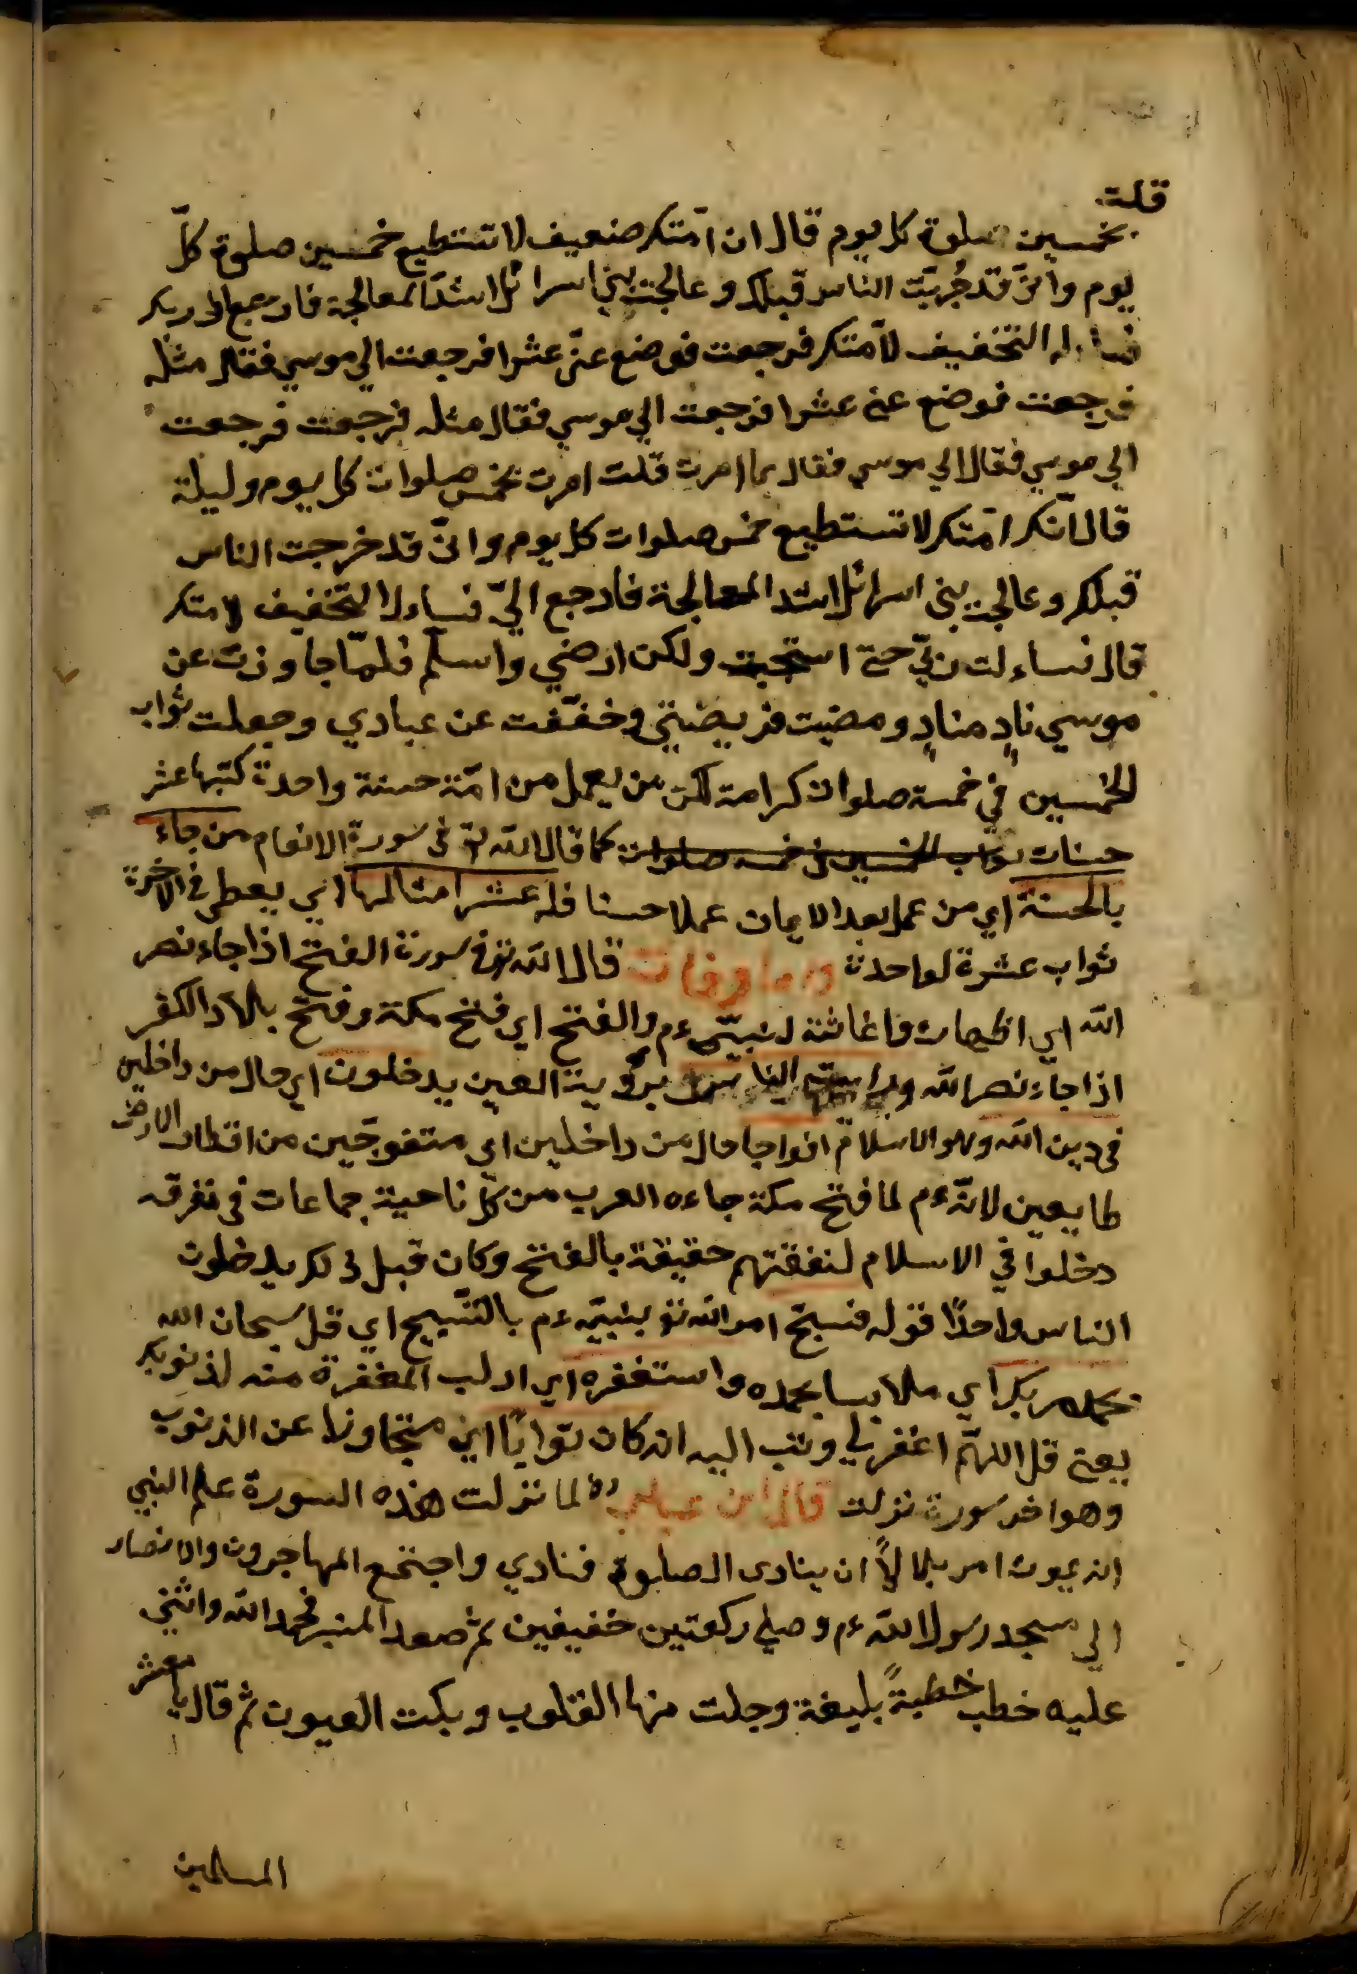 قلت
بخمسين صلوة كل يوم قال ان امّتك ضعيف لا تستطيع خمسين صلوة كلّ
يوم وانّي قد جُربّت الناس قبلك و عالجت بني اسرائل اشدّ المعالجة فارجع الى ربك
له التخفيف لامّتك فرجعت فوضع عنّي عشرا فرجعت الي موسي فقال مثله
فرجعت فوضع عني عشرا فرجعت الي موسي فقال مثله فرجعت فرجعت
الي موسي فقال الي موسي فقال بما امرت قلت امرت بخمس صلوات كل يوم وليلة
قال انّك امّتك لا تستطيع خمس صلوات كل يوم وانّي قد خرجت الناس
قبلك وعالجت بني اسرائل اشد المعالجة فارجع اليّ فساءله التخفيف لامتك
قال فساءلت ربّي حتي استحيت ولكن ارضي واسلّم فلمّا جاوزت عن
موسي نادٍ منادٍ ومضيت فريضتي وخفّفت عن عبادي وجعلت ثواب
الخمسين في خمسة صلوات كرامة لك من يعمل من امّة حسنة واحدة كتبها عشر
حسنات ثواب الخمسين في خمسه صلوات كما قال الله تع في سورة الانعام من جاء
بالحسنة اي من عمل بعد الايمان عملا حسنا فله عشر امثالها اي يعطى في الاخرة
ثواب عشرة لواحدة قال الله تع في سورة الفتح اذا جاء نصر
الله اي اظهاره واغاثته لنبيّه ءم والفتح اي فتح مكة وفتح بلاد الكفر
اذا جاء نصر الله ورايت الناس برؤية العين يدخلون اي حال من داخلين
في دين الله وهو الاسلام افواجا حال من داخلين اي متفوجّين من اقطار الارض
طايعين لانّه ءم لما فتح مكة جاءه العرب من كل ناحية جماعات في تفرقه
دخلوا في الاسلام لنفقتهم حقيقة بالفتح وكان قبل ذلك يدخلون
الناس واحدًا قوله فسبّح امر الله تع بنبيّه ءم بالتّسبيح اي قل سبحان الله
بحمد ربك اي ملابسا بحمده واستغفره اي اطلب المغفرة منه لذنوبك
يعني قل اللهمّ اغفر لي وتب اليه انه كان توّابًا اي متجاوزا عن الذنوب
وهو اخر سورة نزلت قال ابن عباس رض لما نزلت هذه السورة علم النبي
انه يموت امر بلالاً ان ينادى الصلوة فنادي واجتمع المهاجرون والانصار
الي مسجد رسول الله ءم وصلي ركعتين خفيفين ثم صعد المنبر فحمد الله واثنى
عليه خطب خطبةً بليغة وجلت منها القلوب وبكت العيون ثم قال يا معشر
المسلمين